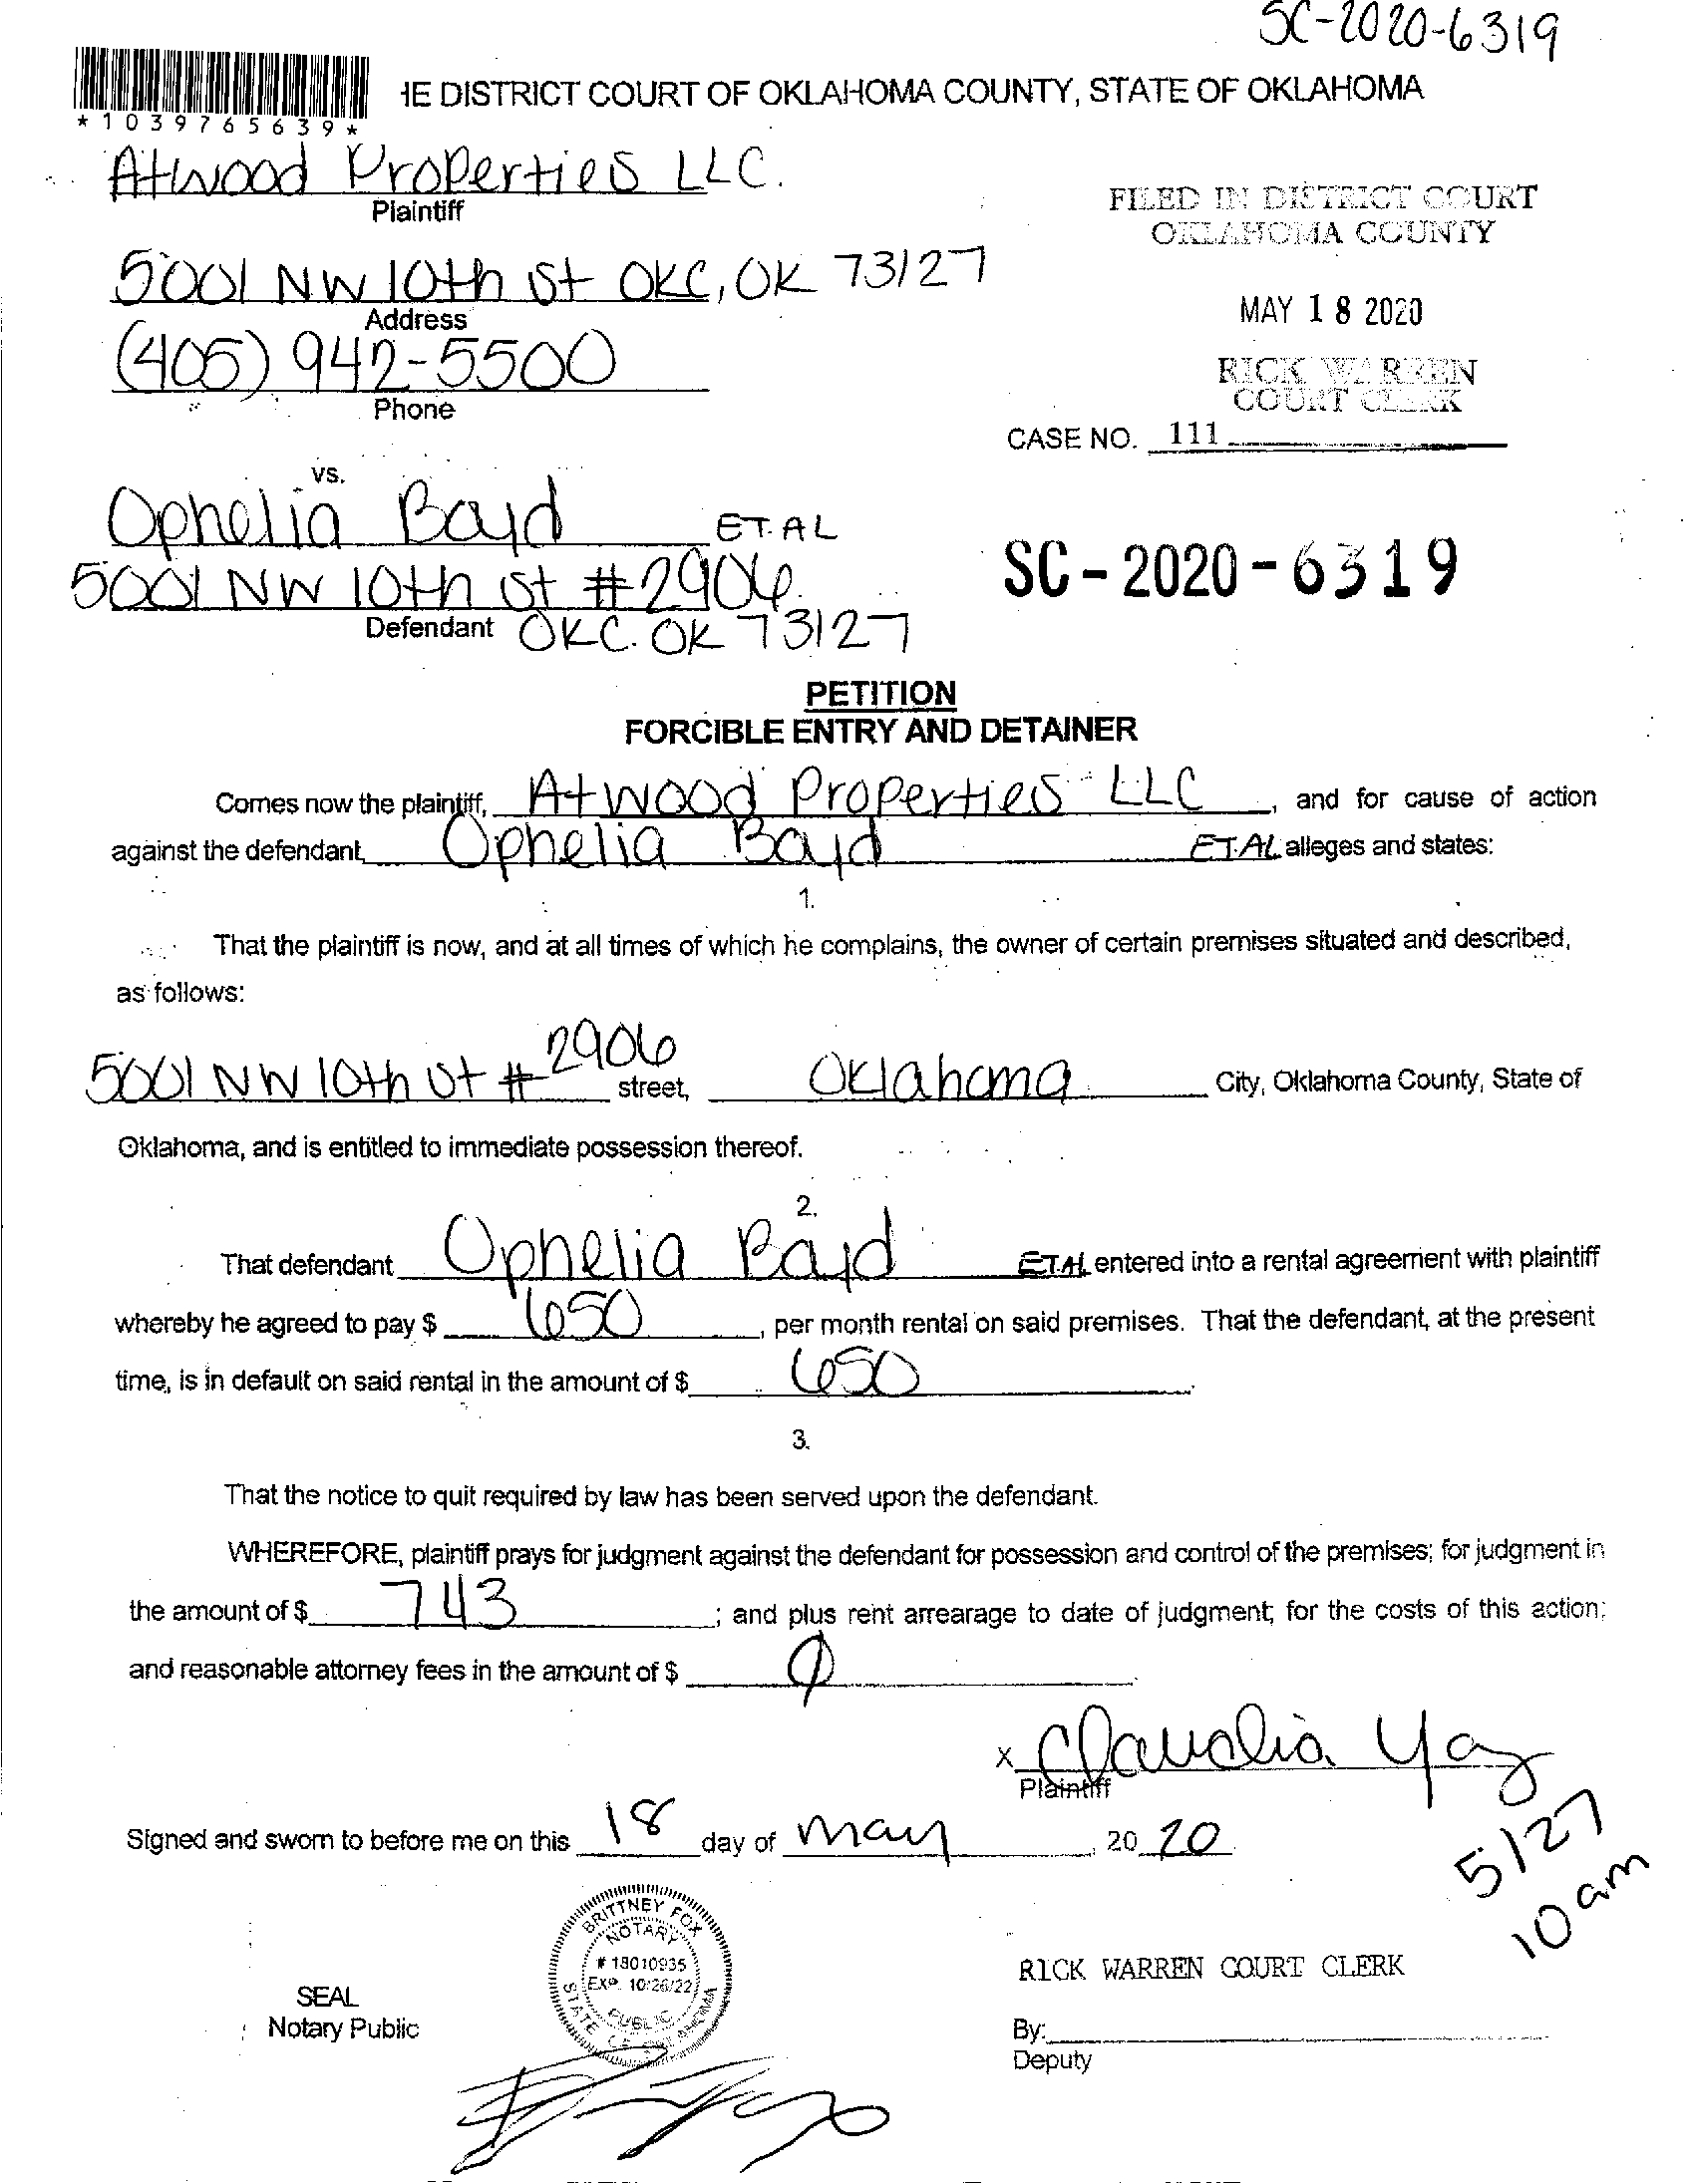 SC-2020-6319
HE DISTRICT COURT OF OKLAHOMA COUNTY, STATE OF OKLAHOMA
*1039765639*
Atwood Properties LLC.
Plaintiff
FILED IN DISTRICT COURT
OKLAHOMA COUNTY
5001 NW 10th St OKC, OK 73127
Address
MAY 18 2020
(405) 942-5500
Phone
RICK WARREN
COURT CLERK
CASE NO. 111
vs.
Ophelia Boyd ET.AL
5001 NW 10th St #2906
Defendant OKC. OK 73127
SC-2020-6319
PETITION
FORCIBLE ENTRY AND DETAINER
Comes now the plaintiff, Atwood Properties LLC, and for cause of action
against the defendant, Ophelia Boyd ET.AL alleges and states:
1.
That the plaintiff is now, and at all times of which he complains, the owner of certain premises situated and described,
as follows:
5001 NW 10th St # 2906 street, Oklahoma City, Oklahoma County, State of
Oklahoma, and is entitled to immediate possession thereof.
2.
That defendant Ophelia Boyd ET.AL entered into a rental agreement with plaintiff
whereby he agreed to pay $ 650, per month rental on said premises. That the defendant, at the present
time, is in default on said rental in the amount of $ 650.
3.
That the notice to quit required by law has been served upon the defendant.
WHEREFORE, plaintiff prays for judgment against the defendant for possession and control of the premises; for judgment in
the amount of $ 743; and plus rent arrearage to date of judgment; for the costs of this action;
and reasonable attorney fees in the amount of $ 0
x Claudia Yaz
Plaintiff
Signed and sworn to before me on this 18 day of May, 2020.
5/27
10 am
BRITTNEY FOX
NOTARY
# 18010935
EXP. 10/26/22
PUBLIC
STATE OF OKLAHOMA
SEAL
Notary Public
RICK WARREN COURT CLERK
By:
Deputy